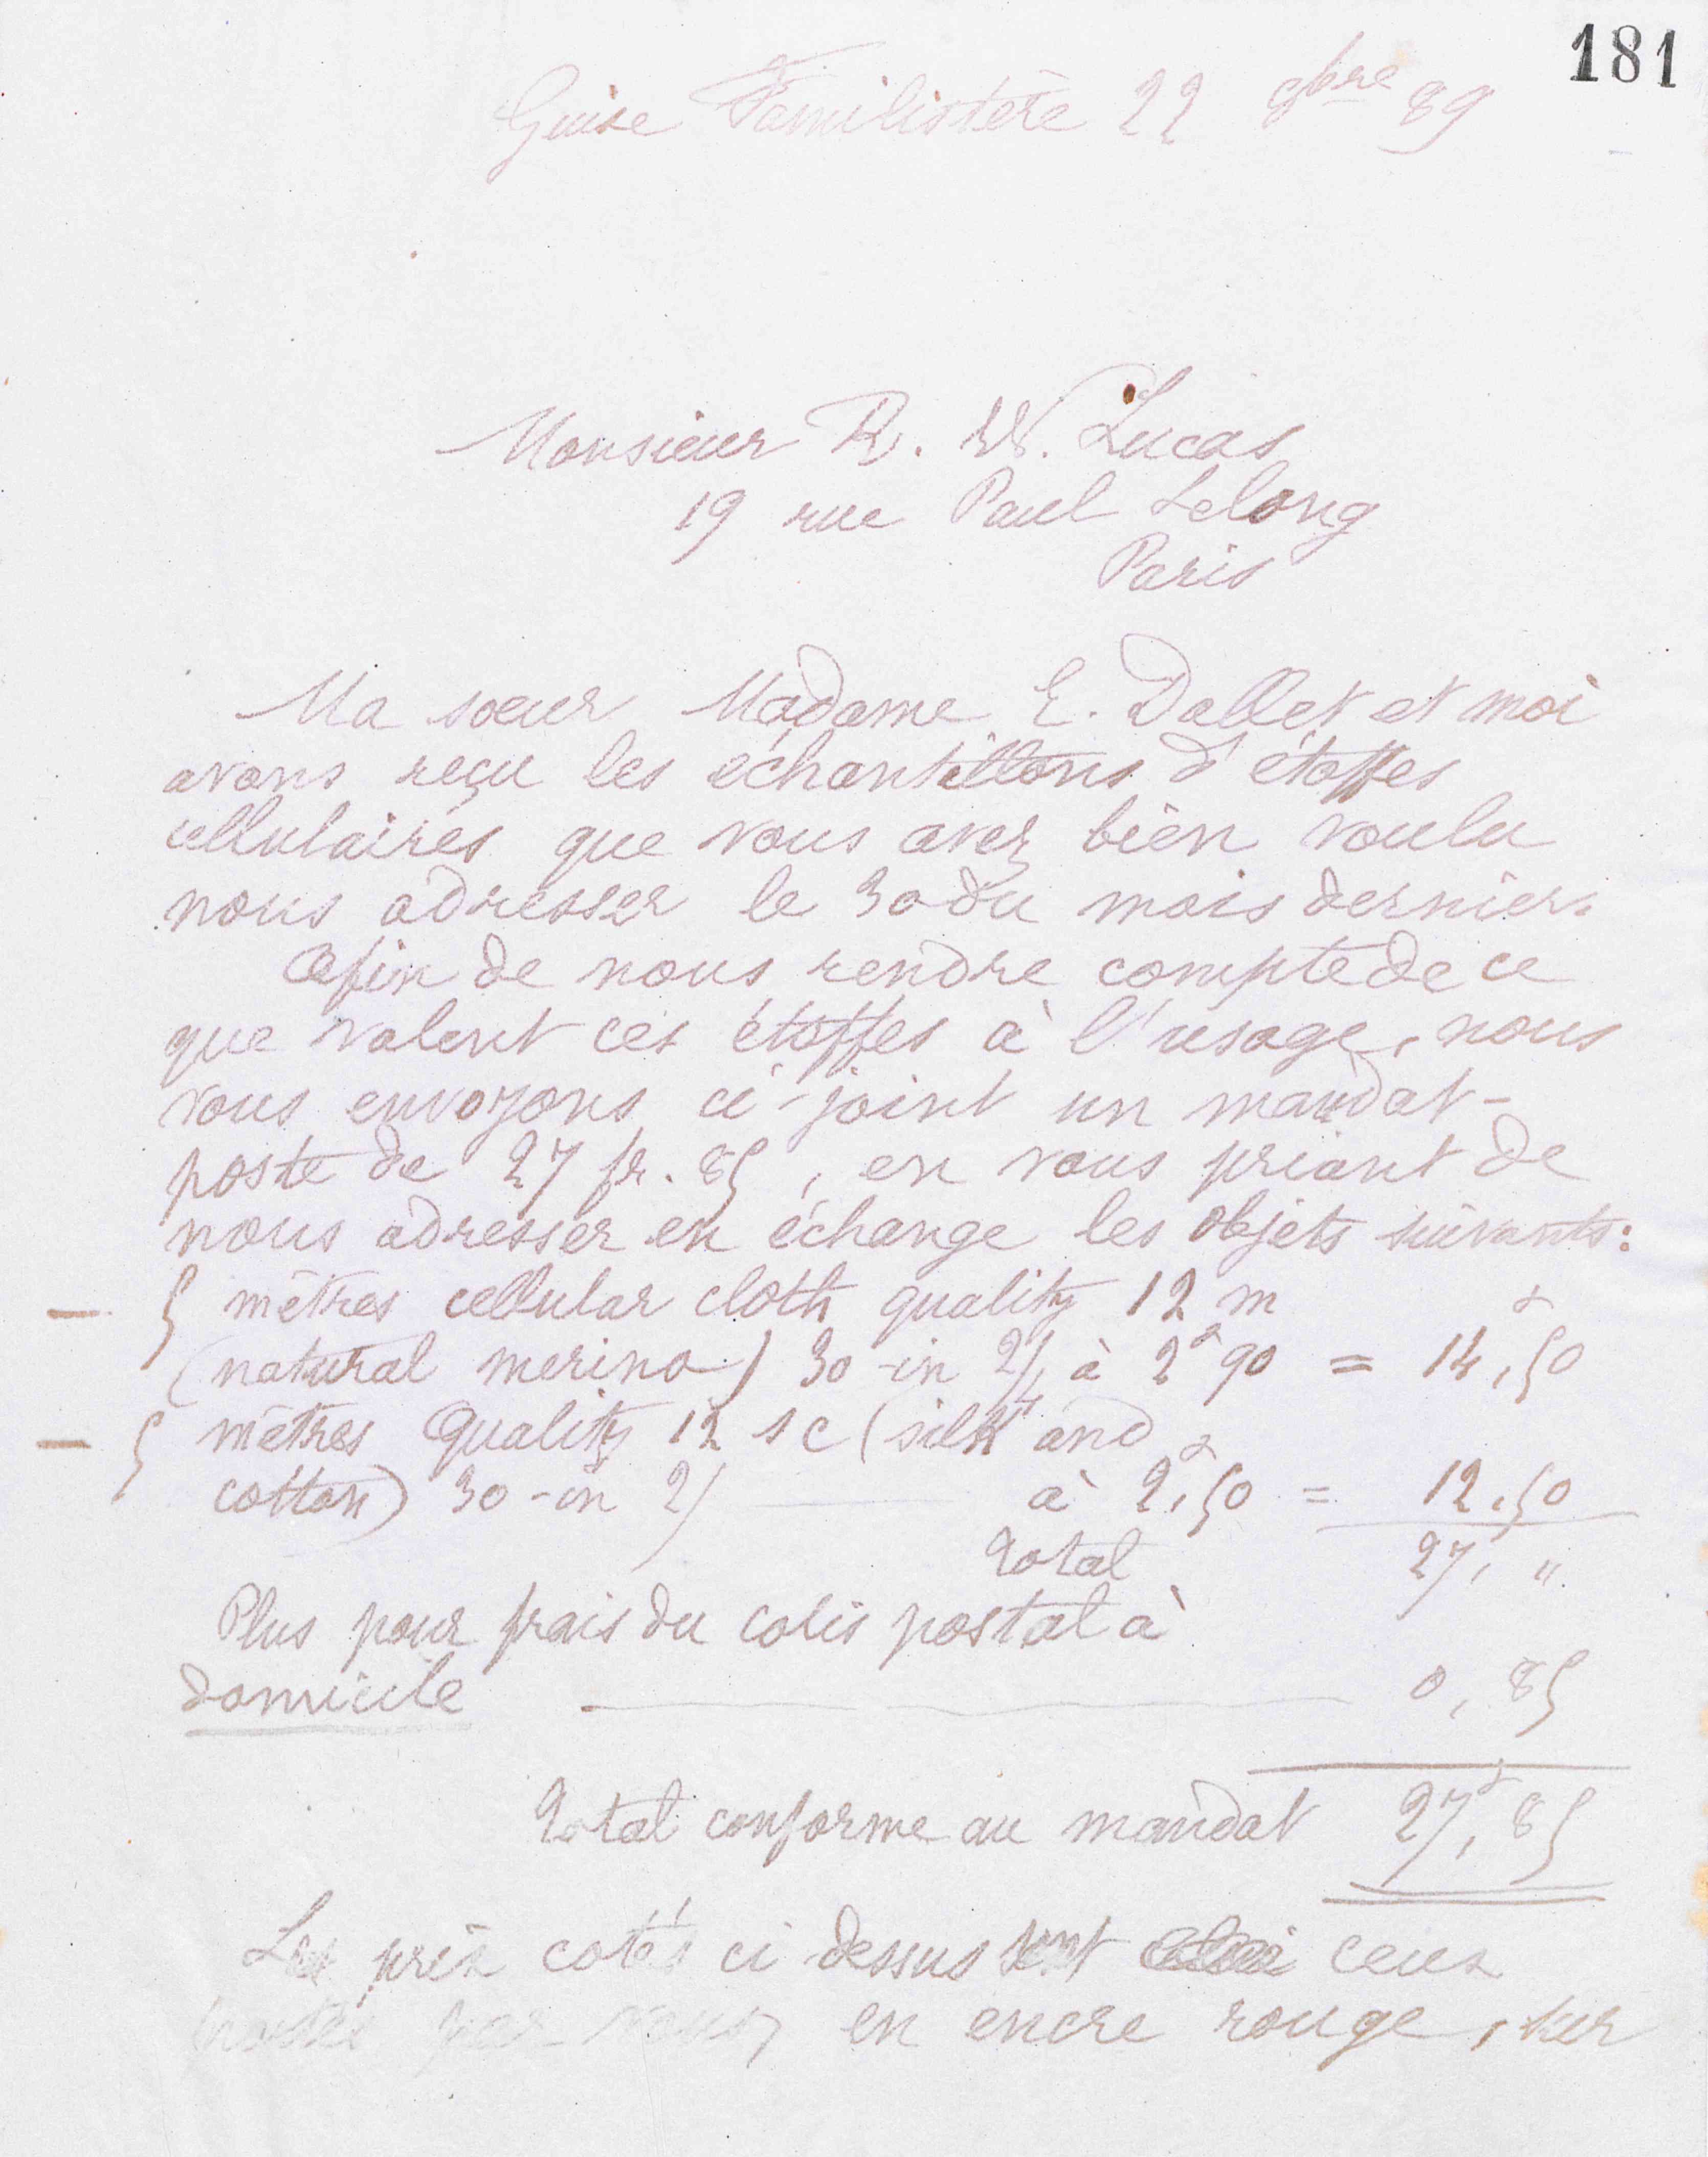 181
Guise Familistère 22 9bre 89
Monsieur R. W. Lucas
19 rue Paul Lelong
Paris
Ma soeur Madame E. Dallet et moi
avons reçu les échantillons d'étoffes
cellulaires que vous avez bien voulu
nous adresser le 30 du mois dernier.
Afin de nous rendre compte de ce
que valent ces étoffes à l'usage, nous
vous envoyons ci-joint un mandat-
poste de 27 fr. 85, en vous priant de
nous adresser en échange les objets suivants:
— 5 mètres cellular cloth quality 12 m
(natural merino) 30-in 2/4 à 2f 90 = 14f,50
— 5 mètres Quality 12 s c (silk and
cotton) 30-in 2/ — à 2f,50 = 12,50
Total 27, "
Plus pour frais du colis postal à
domicile — 0,85
Total conforme au mandat 27f,85
Les prix cotés ci dessus sont ceux
notés par vous, en encre rouge, sur